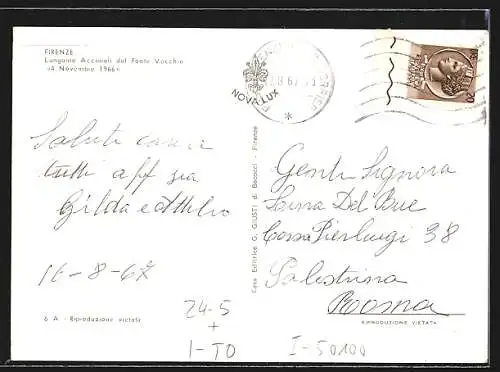 FIRENZE
Lungarno Acciaioli dal Ponte Vecchio
«4 Novembre 1966»
NOVA-LUX
Saluti cari a
tutti aff
Gilda e Attilio
16-8-67
Gent. Signora
Del Bue
Corso Pierluigi 38
Palestrina
Roma
Casa Editrice G. GIUSTI di Becocci - Firenze
6 A. - Riproduzione vietata
RIPRODUZIONE VIETATA
24-5
+
I-TO
I-50100